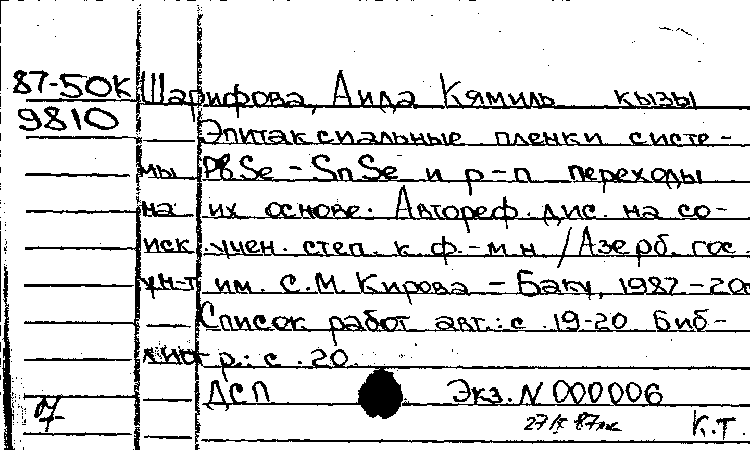 87-50К Шарифова, Аида Кямиль кызы
9810 Эпитаксиальные пленки систе-
мы PbSe - SnSe и p-n переходы
на их основе. Автореф. дис. на со-
иск. учен. степ. к. ф.-м.н. / Азерб. гос.
ун-т им. С.М. Кирова - Баку, 1987. - 20с
Список работ авт.: с. 19-20. Биб-
лиогр.: с. 20.
ДСП Экз. N 000006
К.Т.